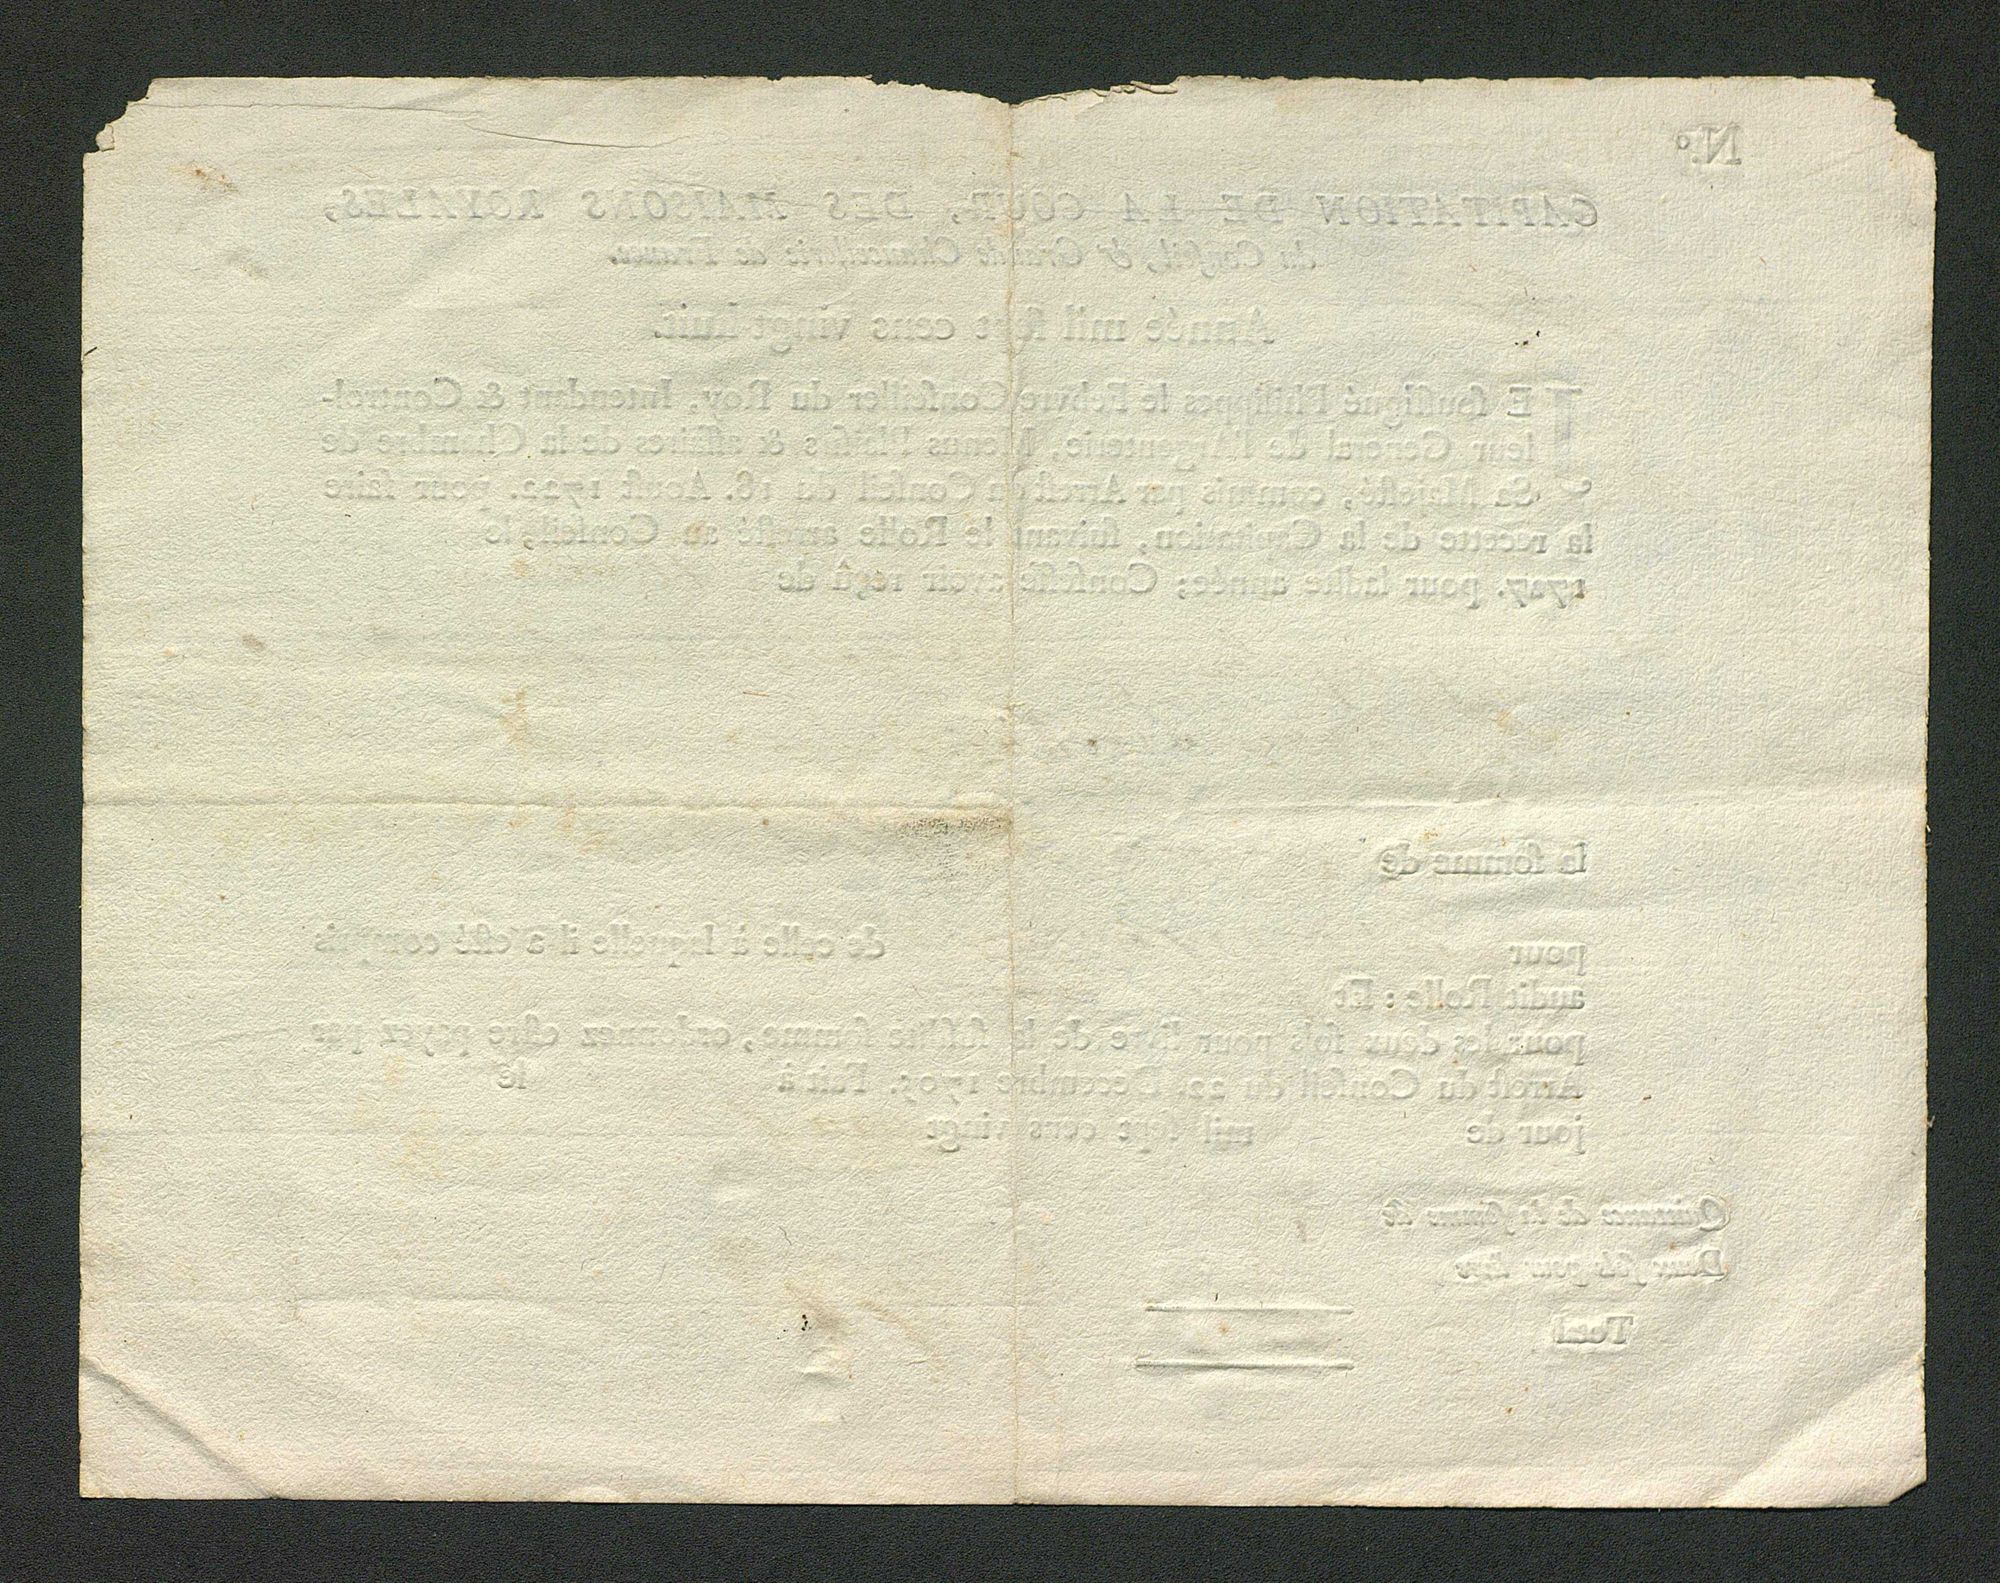 N.°
CAPITATION DE LA COUR, DES MAISONS ROYALES,
du Conſeil, & Grande Chancellerie de France.
Année mil ſept cens vingt-huit.
JE ſouſſigné Philippes le Febvre Conſeiller du Roy, Intendant & Control-
leur General de l'Argenterie, Menus Plaiſirs & affaires de la Chambre de
Sa Majeſté, commis par Arreſt du Conſeil du 18. Aouſt 1722. pour faire
la recette de la Capitation, ſuivant le Rolle arreſté au Conſeil, le
1727. pour ladite année; Confeſſe avoir reçû de
la ſomme de
pour de celle à laquelle il a eſté compris
audit Rolle : Et
pour les deux ſols pour livre de la ſuſdite ſomme, ordonnez eſtre payez par
Arreſt du Conſeil du 22. Decembre 1705. Fait à le
jour de mil ſept cens vingt
Quittance de la ſomme de
Deux ſols pour livre
Total